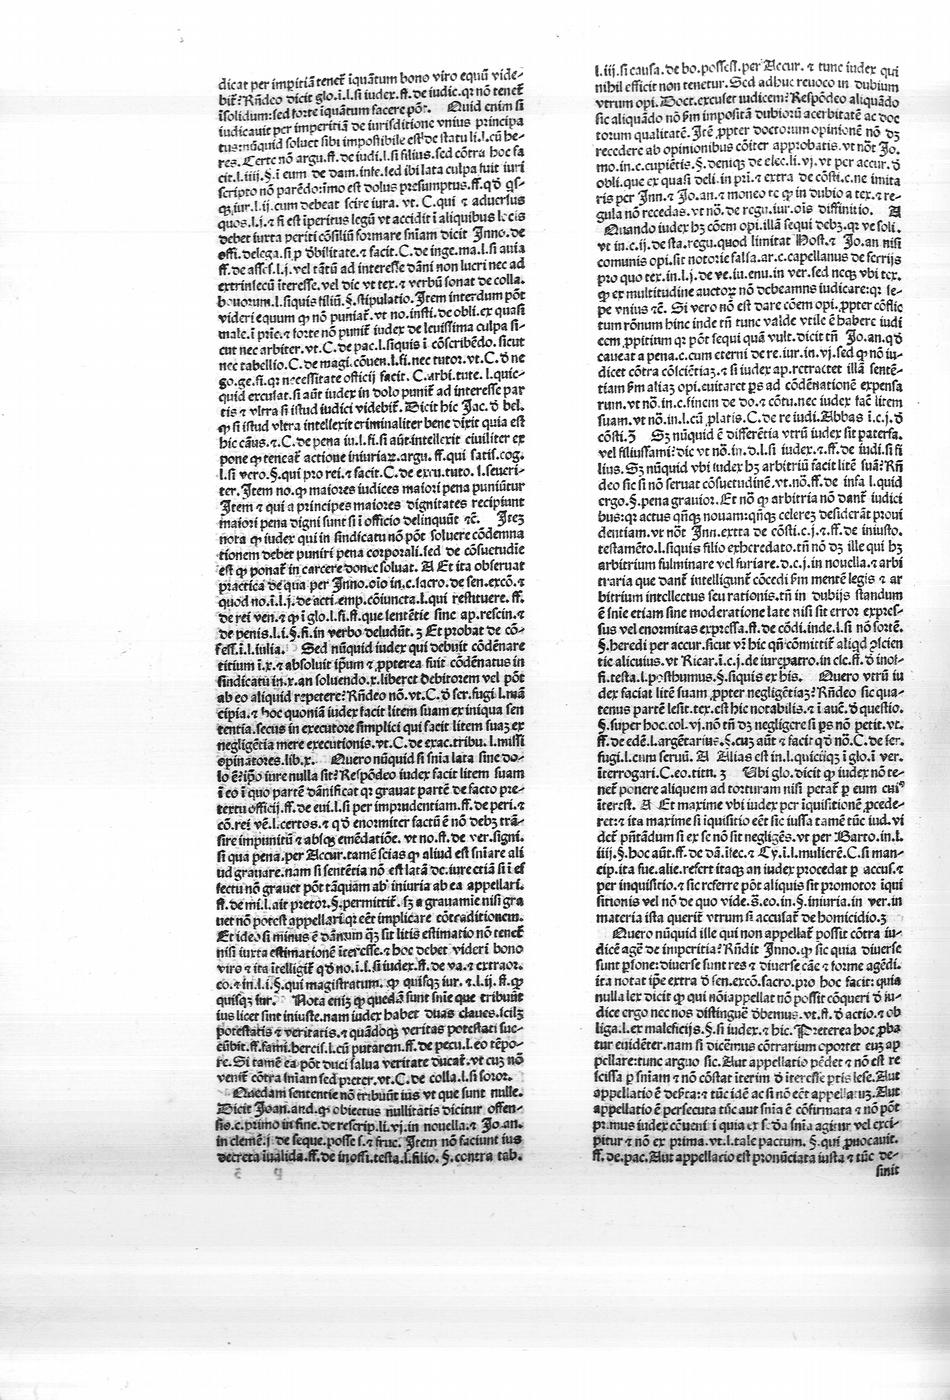 dicat per impitiã tenet̃ iquãtum bono viro equũ vide-
bit̃? Rñdeo dicit glo.ĩ.l.si iudex.ff.de iudic.qr nõ tenet̃
ĩsolidum:sed forte ĩquãtum facere põt. Quid enim si
iudicauit per imperitiã de iurisditione vnius principa
tus:nũquid soluet sibi impossibile est
res. Certe nõ argu.ff.de iudi.l.si filius.sed cõtra hoc fa
cit.l.iiij.§.i cum de dam.infe.sed ibi lata culpa fuit iuri
scripto nõ parẽdo:ĩmo est dolus presumptus.ff.
iur.l.ij.cum debeat scire iura. vt. C.qui & aduersus
quos.l.j.& si est ĩperitus legũ vt accidit ĩ aliquibus locis
debet iuxta periti cõsiliũ formare sñiam dicit Inno.de
offi.delega.si p & facit.C.de inge.ma.l.si auia
ff.de asses.l.j.vel tãtũ ad interesse dãni non lucri nec ad
extrinsecũ ĩteresse. vel dic vt tex.& verbũ sonat de colla.
bonorum.l.siquis filiũ.§.stipulatio.Item interdum põt
videri equum ꝙ nõ puniat̃.vt no.insti.de obli.ex quasi
male.ĩ prĩc.& forte nõ punit̃ iudex de leuissima culpa si-
cut nec arbiter.vt.C.de pac.l.siquis ĩ cõscribẽdo.sicut
nec tabellio.C.de magi.cõuen.l.fi.nec tutor.vt.C.ð ne
go.ge.fi.qr necessitate officij facit. C.arbi.tute. l.quic-
quid excusat.si aũt iudex in dolo punit̃ ad interesse par
tis & vltra si istud iudici videbit̃. Dicit hic Jac. ð bel.
ꝙ si istud vltra intellexit criminaliter bene dixit quia est
hic cãus.&.C.de pena iu.l.fi.si aũt intellexit ciuiliter ex
pone ꝙ teneat̃ actione iniuriaꝝ.argu.ff.qui satif.cog.
l.si vero.§.qui pro rei.& facit.C.de excu.tuto. l.seueri-
ter. Item no.ꝙ maiores iudices maiori pena puniũtur
Item & qui a principes maiores dignitates recipiunt
maiori pena digni sunt si ĩ officio delinquũt &c̃. Iteʒ
nota ꝙ iudex qui in sindicatu nõ põt soluere cõdemna
tionem debet puniri pena corporali.sed de cõsuetudie
est ꝙ ponat̃ in carcere donec soluat. A Et ita obseruat
practica de qua per Inno.oĩo in.c.sacro.de sen.excõ.&
quod no.ĩ.l.j.de acti.emp.cõiuncta.l.qui restituere. ff.
de rei ven.& ꝙ ĩ glo.l.fi.ff.que sentẽtie sine ap.rescin.&
de penis.l.i.§.fi.in verbo deludũt.ʒ Et probat de cõ-
fess.ĩ.l.iulia. Sed nũquid iudex qui debuit cõdẽnare
titium ĩ.x.& absoluit ip̃um & ꝓpterea fuit cõdẽnatus in
sindicatu in.x.an soluendo.x.liberet debitorem vel põt
ab eo aliquid repetere? Rñdeo nõ.vt.C.ð ser.fugi.l.mã
cipia.& hoc quoniã iudex facit litem suam ex iniqua sen
tentia.secus in executore simplici qui facit litem suaʒ ex
negligẽtia mere executionis.vt.C.de exac.tribu.l.missi
opinatores.lib.x. Quero nũquid si sñia lata sine do-
lo ẽ ĩp̃o iure nulla sit? Respõdeo iudex facit litem suam
ĩ eo ĩ quo partẽ dãnificat qr grauat partẽ de facto pre-
textu officij.ff.de eui.l.si per imprudentiam.ff.de peri.&
cõ.rei vẽ.l.certos.& qð enormiter factũ ẽ nõ debʒ trã-
sire impunitũ & absqʒ emẽdatiõe. vt no.ff.de ver.signi.
si qua pena.per Accur.tamẽ scias ꝙ aliud est sñiare ali
ud grauare.nam si sentẽtia nõ est lata de iure etiã si ĩ ef
fectu nõ grauet põt tãquam ab iniuria ab ea appellari.
ff.de mi.l.ait pretor.§.permittit̃. sʒ a grauamie nisi gra
uet nõ potest appellari:qr eẽt implicare cõtraditionem.
Et ideo si minus ẽ dãnum qʒ sit litis estimatio nõ tenet̃
nisi iuxta estimationẽ ĩteresse.& hoc debet videri bono
viro & ita ĩtelligit̃ qð no.ĩ.l.si iudex.ff.de va.& extraor.
co.& in.l.i.§.qui magistratum. ꝙ quisqʒ iur. & l.ij. ff.ꝙ
quisqʒ iur. Nota eniʒ ꝙ quedã sunt sñie que tribuũt
ius licet sint iniuste.nam iudex habet duas claues.scilʒ
potestatis & veritatis.& quãdoqʒ veritas potestati suc-
cũbit.ff.fami.hercis.l.cũ putarem.ff.de pecu.l.eo tẽpo-
re. Si tamẽ ea põt duci salua veritate ducat̃.vt cuʒ nõ
venit̃ cõtra sñiam sed preter.vt.C.de colla.l.si soror.
Quedam sententie nõ tribuũt ius vt que sunt nulle.
Dicit Joan.and.ꝙ obiectus nullitatis dicitur offen-
sio.c.primo in fine.de rescrip.li.vj.in nouella.& Jo.an.
in clemẽ.j.de seque.posse s.& fruc. Item nõ faciunt ius
decreta ĩualida.ff.de inoffi.testa.l.filio. §.contra tab.
l.iij.si causa.de bo.possess.per Accur. & tunc iudex qui
nihil efficit non tenetur. Sed adhuc reuoco in dubium
vtrum opi. Doct.excuset iudicem? Respõdeo aliquãdo
sic aliquãdo nõ ẞm impositã dubioꝝ acerbitatẽ ac doc
torum qualitatẽ. Itẽ ꝓpter doctorum opinionẽ nõ dʒ
recedere ab opinionibus cõiter approbatis.vt nõt Jo.
mo.in.c.cupiẽtis.§.deniqʒ de elec.li.vj.vt per accur.ð
obli.que ex quasi deli.in pri.& extra de cõsti.c.ne imita
ris per Inn.& Jo.an.& moneo te ꝙ in dubio a tex.& re-
gula nõ recedas.vt nõ.de regu.iur.oĩs diffinitio. A
Quando iudex hʒ cõem opi.illã sequi debʒ.qr ve soli.
vt in.c.ij.de sta.regu.quod limitat Host.& Jo.an nisi
comunis opi.sit notorie falsa.ar.c.capellanus de ferijs
pro quo tex.in.l.j.de ve.iu.enu.in ver.sed neqʒ vbi tex.
ꝙ ex multitudine auctoꝝ nõ debeamus iudicare:qr se-
pe vnius &c̃. Si vero nõ est dare cõem opi.ꝓpter cõflic
tum rõnum hinc inde tñ tunc valde vtile ẽ habere iudi
cem ꝓpitium qr põt sequi quã vult.dicit tñ Jo.an.qð
caueat a pena.c.cum eterni de re.iur.in.vj.sed ꝙ nõ iu-
dicet cõtra cõsciẽtiaʒ.& si iudex ap.retractet illã sentẽ-
tiam ẞm aliaʒ opi.euitaret ps ad cõdẽnationẽ expensa
rum.vt nõ.in.c.finem de do.& cõtu.nec iudex fac̃ litem
suam.vt nõ.in.l.cũ platis.C.de re iudi.Abbas ĩ.c.j.ð
cõsti.ʒ Sʒ nũquid ẽ differẽtia vtrũ iudex sit paterfa.
vel filiusfami? dic vt nõ.in.d.l.si iudex.&.ff.de iudi.si fi
lius. Sʒ nũquid vbi iudex hʒ arbitriũ facit litẽ suã? Rñ
deo sic si nõ seruat cõsuetudinẽ.vt.nõ.ff.de infa l.quid
ergo.§.pena grauior. Et nõ ꝙ arbitria nõ dant̃ iudici
bus:qr actus qñqʒ nouam:qñqʒ celereʒ desiderãt proui
dentiam.vt nõt Inn.extra de cõsti.c.j.&.ff.de iniusto.
testamẽto.l.siquis filio exheredato.tñ nõ dʒ ille qui hʒ
arbitrium fulminare vel furiare.d.c.j.in nouella.& arbi
traria que dant̃ intelligunt̃ cõcedi ẞm mentẽ legis & ar
bitrium intellectus seu rationis.tñ in dubijs standum
ẽ sñie etiam sine moderatione late nisi sit error expres-
sus vel enormitas expressa.ff.de cõdi.inde.l.si nõ sortẽ.
§.heredi per accur.sicut vʒ hic qñ cõmittit̃ aliqð
tie alicuius.vt Ricar.ĩ.c.j.de iurepatro.in cle.ff.ð inof-
fi.testa.l.posthumus.§.siquis ex his. Quero vtrũ iu
dex faciat litẽ suam ꝓpter negligẽtiaʒ? Rñdeo sic qua-
tenus partẽ lesit.tex.est hic notabilis.& ĩ auẽ.ð questio.
§.super hoc.col.vj.nõ tñ dʒ negligere si ps nõ petit.vt.
ff.de edẽ.l.argẽtarius.§.cuʒ aũt & facit qð nõ.C.de ser.
fugi.l.cum seruũ. A Alias est in.l.quicũqʒ ĩ glo.ĩ ver.
ĩterrogari.C.eo.titu.ʒ Vbi glo.dicit ꝙ iudex nõ te-
net̃ ponere aliquem ad torturam nisi petat̃ p eum cuiꝰ
ĩterest. A Et maxime vbi iudex per ĩquisitionẽ ꝓcede-
ret:& ita maxime si ĩquisitio eẽt sic iussa tamẽ tũc iud.vi
dct̃ pñtãdum si ex se nõ sit negligẽs.vt per Barto.in.l.
iiij.§.hoc aũt.ff.de dã.ĩfec.& Cy.ĩ.l.mulierẽ.C.si man-
cip.ita fue.alie.refert itaqʒ an iudex procedat p accus.&
per inquisitio.& sic referre põt aliquis sit promotor ĩqui
sitionis vel nõ de quo vide.s̃.eo.in.§.iniuria.in ver.in
materia ista querit̃ vtrum si accusat̃ de homicidio.ʒ
Quero nũquid ille qui non appellat̃ possit cõtra iu-
dicẽ agẽ de imperitia? Rñdit Inno.ꝙ sic quia diuerse
sunt ꝑsone:diuerse sunt res & diuerse cãe & forme agẽdi.
ita notat ip̃e extra ð sen.excõ.sacro.pro hoc facit: quia
nulla lex dicit ꝙ qui nõ appellat nõ possit cõqueri ð iu-
dice ergo nec nos distinguẽ ðbemus.vt.ff.ð actio.& ob
liga.l.ex maleficijs.§.si iudex.& hic. Preterea hoc ꝓba
tur euidẽter.nam si dicẽmus cõtrarium oportet euʒ ap
pellare:tunc arguo sic. Aut appellatio pẽdet & nõ est re
scissa p sñiam & nõ cõstat iterim ð ĩteresse ptis lese. Aut
appellatio ẽ deserta:& tũc idẽ ac si nõ eẽt appellatuʒ. Aut
appellatio ẽ persecuta tũc aut sñia ẽ cõfirmata & nõ põt
primus iudex cõueni ĩ quia ex sc̃ða sñia agitur vel exci-
pitur & nõ ex prima.vt.l.tale pactum. §.qui ꝓuocauit.
ff.de.pac. Aut appellatio est pronũciata iusta & tũc de-
sinit